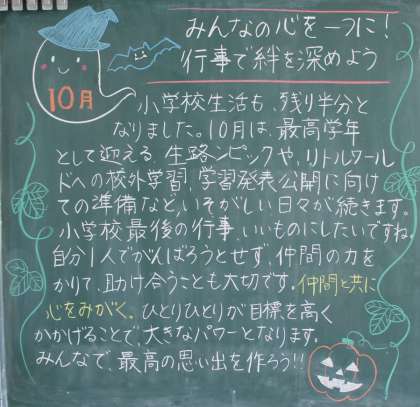 みんなの心を一つに!
行事で絆を深めよう
10月
小学校生活も、残り半分と
なりました。10月は、最高学年
として迎える、生路ンピックや、リトルワール
ドへの校外学習、学習発表公開に向け
ての準備など、いそがしい日々が続きます。
小学校最後の行事、いいものにしたいですね。
自分1人でがんばろうとせず、仲間の力を
かりて、助け合うことも大切です。仲間と共に
心をみがく。ひとりひとりが目標を高く
かかげることで、大きなパワーとなります。
みんなで、最高の思い出を作ろう!!